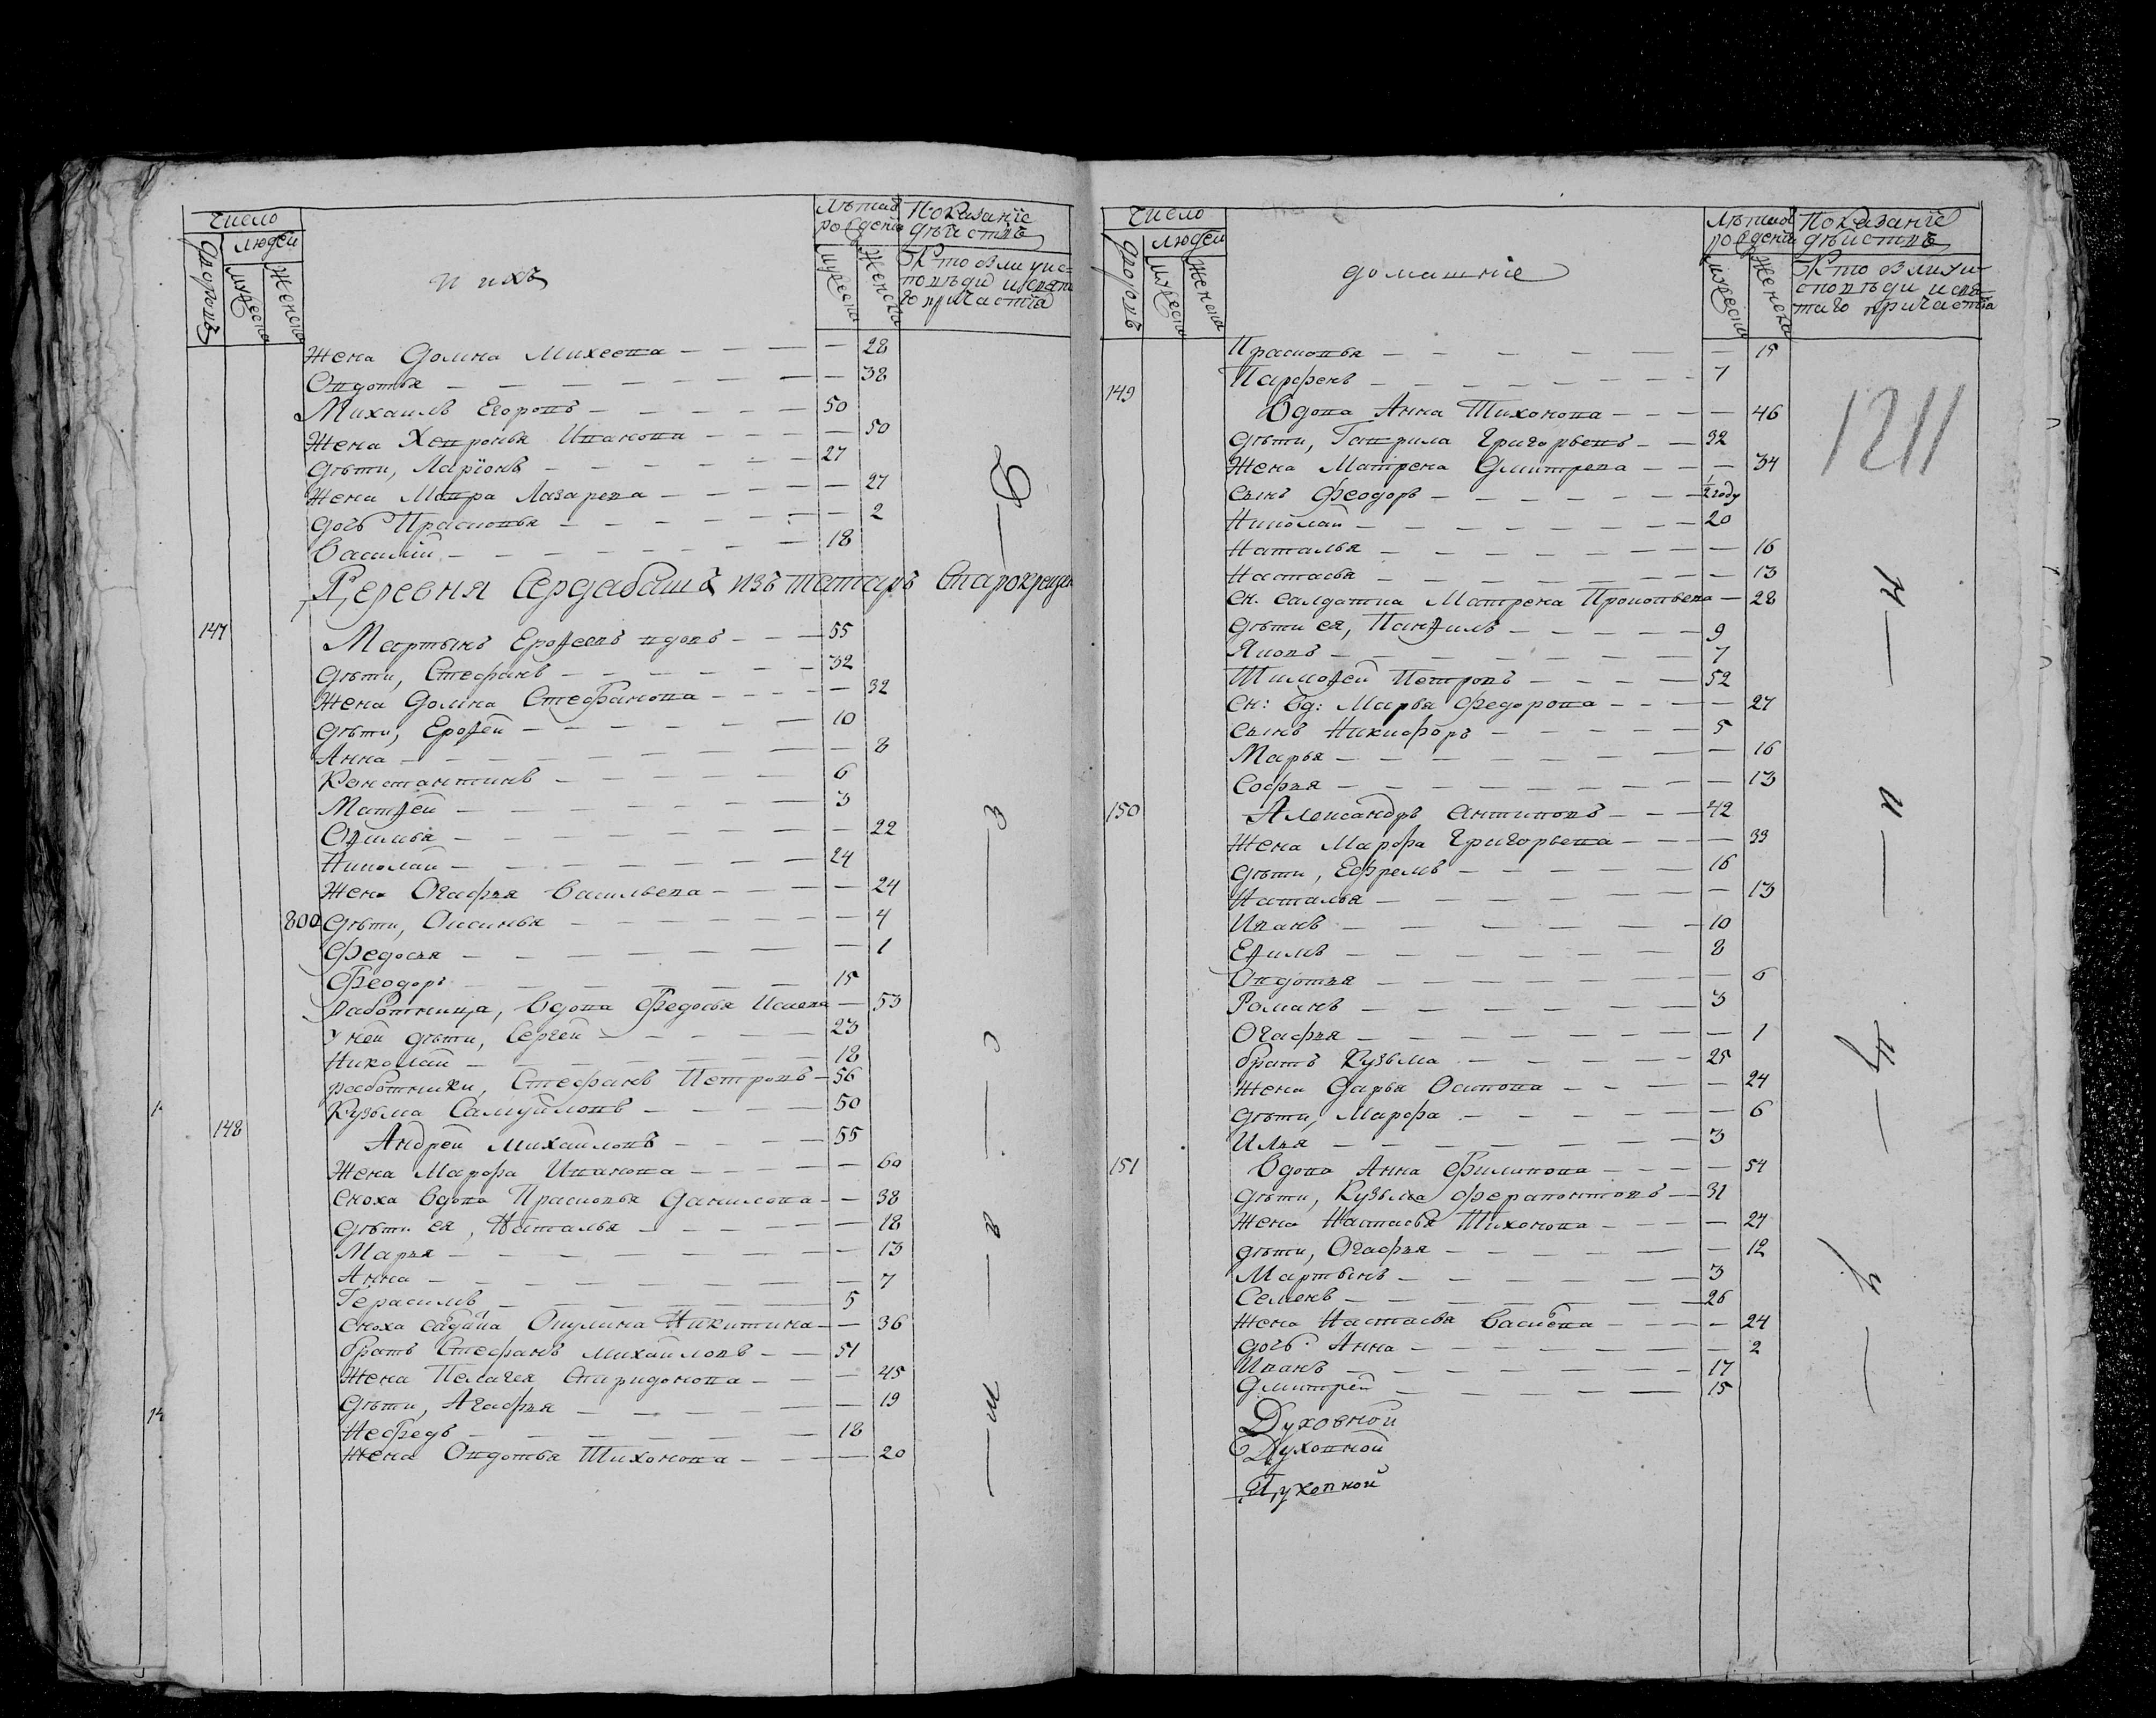 Число
людей
Дворовъ
мужеска
Женска
и ихъ
Лѣта от рождения
мужеска
Женска
Показанїе дѣйствъ
Кто были у исповѣди и святаго причастїя
Жена Домна Михеева — 28
Овдотья — 38
Михаилъ Егоровъ — 50
Жена Хевронья Иванова — 50
дѣти, Ларїонъ — 27
Жена Мавра Лазарева — 27
дочь Прасковья — 2
Василїй — 18
Деревня Сердабашъ изъ татаръ Старокрещен
147 Мартынъ Ерофеевъ вдовъ — 55
дѣти, Стефанъ — 32
Жена Домна Стефанова — 32
дѣти, Ерофей — 10
Анна — 8
Константинъ — 6
Матѳей — 3
Офимья — 22
Николай — 24
Жена Огафья Васильева — 24
800 дѣти, Оксинья — 4
Федосья — 1
Феодоръ — 15
Работница, Вдова Федосья Исаева — 53
У ней дѣти, Сергей — 23
Николай — 18
работники, Стефанъ Петровъ — 56
Кузьма Самуйловъ — 50
148 Андрей Михайловъ — 55
Жена Марфа Иванова — 60
Сноха Вдова Прасковья Данилова — 38
дѣти ея, Наталья — 18
Марья — 13
Анна — 7
Герасимъ — 5
Сноха Окулина Никитина — 36
братъ Стефанъ Михайловъ — 51
Жена Пелагея Спиридонова — 45
дѣти, Агафья — 19
Нефедъ — 18
Жена Овдотья Тихонова — 20
Число
людей
Дворовъ
мужеска
Женска
домашнїе
Лѣта от рождения
мужеска
Женска
Показанїе дѣйствъ
Кто были у исповѣди и святаго причастїя
1211
Прасковья — 15
Парфенъ — 7
149 Вдова Анна Тихонова — 46
дѣти, Гаврила Григорьевъ — 32
Жена Матрена Дмитрева — 34
сынъ Феодоръ — 1/2 году
Николай — 20
Наталья — 16
Настасья — 13
Сн. салдатка Матрена Прокопьева — 28
дѣти ея, Панфилъ — 9
Яковъ — 7
Тимофей Петровъ — 52
Сн: Вд: Марья Федорова — 27
сынъ Никифоръ — 5
Марья — 16
Софья — 13
150 Александръ Антиповъ — 42
Жена Марфа Григорьева — 33
дѣти, Ефремъ — 16
Наталья — 13
Иванъ — 10
Ефимъ — 8
Овдотья — 6
Романъ — 3
Огафья — 1
братъ Кузьма — 25
Жена Дарья Осипова — 24
дѣти, Марфа — 6
Илья — 3
151 Вдова Анна Филипова — 54
дѣти, Кузьма Ферапонтовъ — 31
Жена Настасья Тихонова — 24
дѣти, Огафья — 12
Мартынъ — 3
Семенъ — 26
Жена Настасья Васильева — 24
дочь Анна — 2
Иванъ — 17
Дмитрей — 15
Духовной
Духовной
Духовной